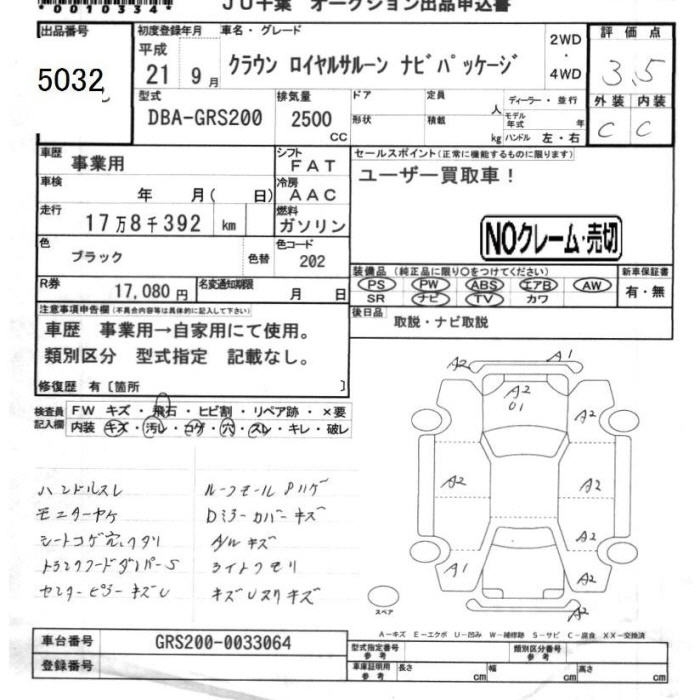 *0010334*
JU千葉 オークション出品申込書
出品番号
5032
初度登録年月
平成
21 9月
車名・グレード
クラウン ロイヤルサルーン ナビパッケージ
2WD
・
4WD
評価点
3.5
外装 内装
C C
型式
DBA-GRS200
排気量
2500
CC
ドア
形状
定員
人
積載
kg
ディーラー・並行
モデル年式 年
ハンドル 左・右
車歴
事業用
シフト
FAT
車検
年 月( 日)
冷房
AAC
走行
17万8千392 km
燃料
ガソリン
色
ブラック
色替
色コード
202
R券
17,080円
名変通知期限
月 日
セールスポイント(正常に機能するものに限ります)
ユーザー買取車!
NOクレーム・売切
装備品 (純正品に限り○をつけてください)
PS PW ABS エアB AW
SR ナビ TV カワ
新車保証書
有・無
後日品
取説・ナビ取説
注意事項申告欄(不具合内容等は具体的に記入して下さい)
車歴 事業用→自家用にて使用。
類別区分 型式指定 記載なし。
修復歴 有〔箇所 〕
検査員記入欄
FW キズ・飛石・ヒビ割・リペア跡・×要
内装 キズ・汚レ・コゲ・穴・スレ・キレ・破レ
ハンドルスレ
モニターヤケ
シートコゲ穴ヘタリ
トランクフードダンパーS
センターピラーキズU
ルーフモール
Dミラーカバーキズ
A/Wキズ
ライトクモリ
キズUスリキズ
A2 A1
A2
01
A2
A2
A2
A2
A2
A1
A2
A2
スペア
A-キズ E-エクボ U-凹み W-補修跡 S-サビ C-腐食 XX-交換済
車台番号
GRS200-0033064
登録番号
型式指定番号
参考
類別区分番号
参考
車庫証明用
参考
長さ cm
幅 cm
高さ cm